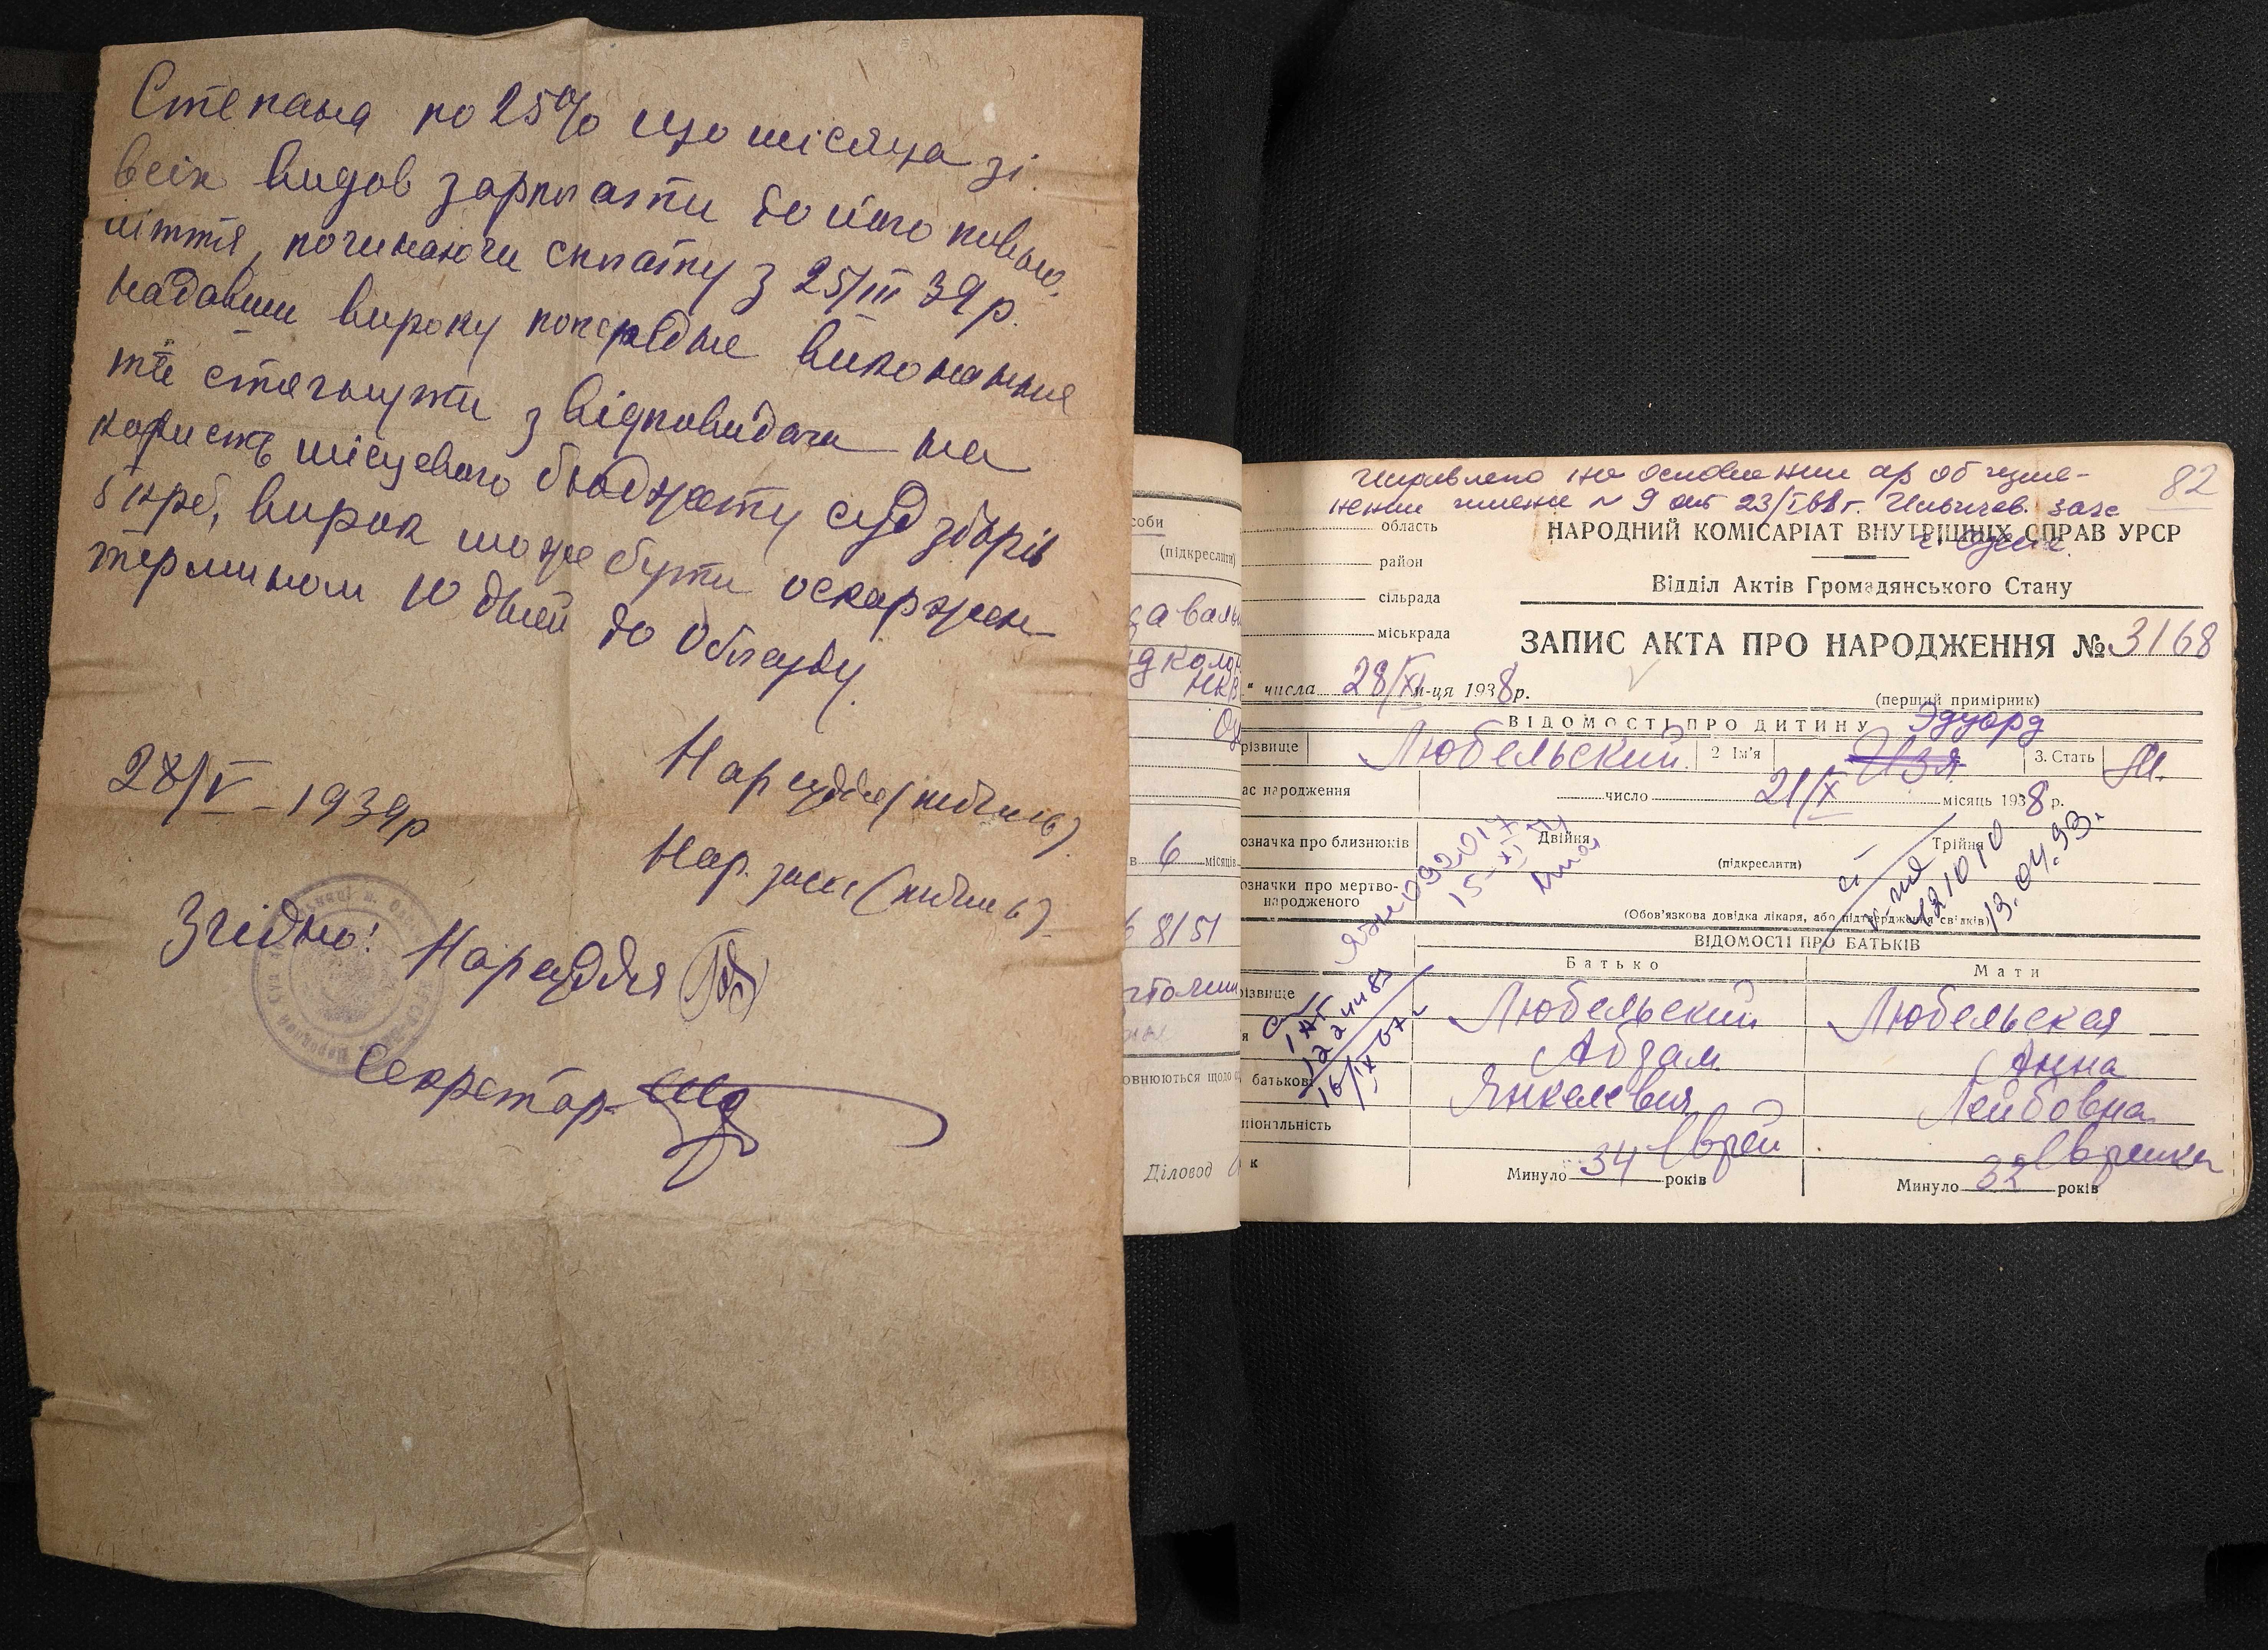 Степана по 25% що місяця зі
всіх видов зарплати до його повно,
ліття, починаючи сплату з 25/III 39 р.
надавши вироку попереднє виконання
та стягнути з відповидача на
користь місцевого бюджету суд зборів
5 крб, вирок може бути оскаржен
терміном 10 дней до Облсуду.
28/V - 1939р
Нарсуддя (підпись)
Нар. зас. (підпись).
Згідно: Нарсуддя
Секретар
соби
(підкреслити)
в 6 місяців
8151
овнюються щодо
Діловод
Исправлено на основании ар об изме-
нении имени № 9 от 23/I 68 г. Ильичев. загс
г. Одессе.
82
область
район
сільрада
міськрада
НАРОДНИЙ КОМІСАРІАТ ВНУТРІШНІХ СПРАВ УРСР
Відділ Актів Громадянського Стану
ЗАПИС АКТА ПРО НАРОДЖЕННЯ № 3168
" числа 28/XI м-ця 1938 р.
(перший примірник)
ВІДОМОСТІ ПРО ДИТИНУ
Эдуард
різвище Любельский 2 Ім'я Изя 3. Стать М.
ас народження число 21/X місяць 1938 р.
означка про близнюків Двійня Трійня
(підкреслити)
означки про мертво-
народженого
(Обов'язкова довідка лікаря, або підтвердження свідків)
092017
15-XI-
121010
13.04.93.
ВІДОМОСТІ ПРО БАТЬКІВ
Батько Мати
ізвище Любельский Любельская
я Абрам Анна
батькові Янкелевич Лейбовна
ціональність Еврей Еврейка
к Минуло 34 років Минуло 32 років